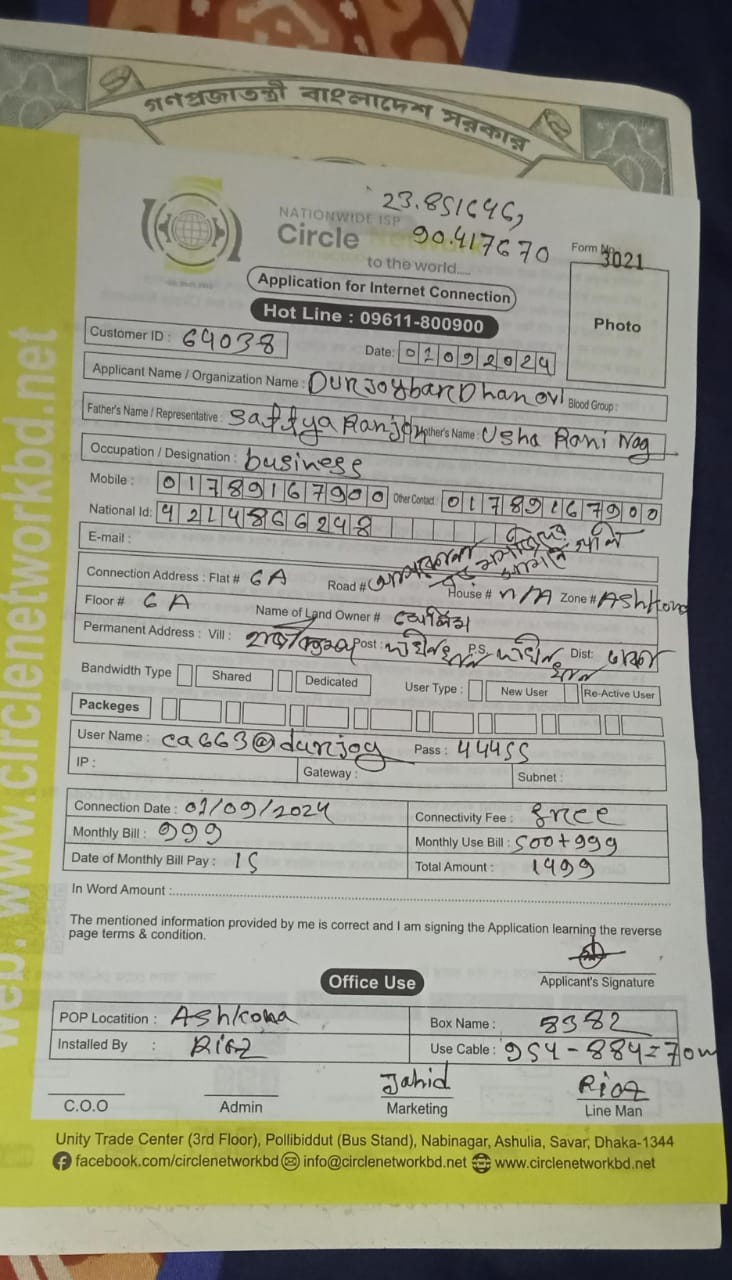 গণপ্রজাতন্ত্রী বাংলাদেশ সরকার
23.851646,
90.417670
NATIONWIDE ISP
Circle Network
to the world.....
Form No : 3021
Application for Internet Connection
Hot Line : 09611-800900
Photo
Customer ID : 64038
Date: 01092024
Applicant Name / Organization Name : Durjoybardhanovi Blood Group :
Father's Name / Representative : Sattya Ranjon Mother's Name : Usha Rani Nag
Occupation / Designation : business
Mobile : 01789167900 Other Contact : 01789167900
National Id: 4214866248
E-mail :
Connection Address : Flat # 6A Road # House # N/A Zone # Ashkona
Floor # 6A Name of Land Owner #
Permanent Address : Vill : Post : P.S. Dist:
Bandwidth Type Shared Dedicated User Type : New User Re-Active User
Packeges
User Name : ca663@durjoy Pass : 44455
IP : Gateway : Subnet :
Connection Date : 01/09/2024 Connectivity Fee : free
Monthly Bill : 999 Monthly Use Bill : 500+999
Date of Monthly Bill Pay : 15 Total Amount : 1499
In Word Amount :
The mentioned information provided by me is correct and I am signing the Application learning the reverse
page terms & condition.
Applicant's Signature
Office Use
POP Locatition : Ashkona Box Name : 8382
Installed By : Riaz Use Cable : 954-884=70m
Jahid Riaz
C.O.O Admin Marketing Line Man
Unity Trade Center (3rd Floor), Pollibiddut (Bus Stand), Nabinagar, Ashulia, Savar, Dhaka-1344
facebook.com/circlenetworkbd info@circlenetworkbd.net www.circlenetworkbd.net
web: www.circlenetworkbd.net